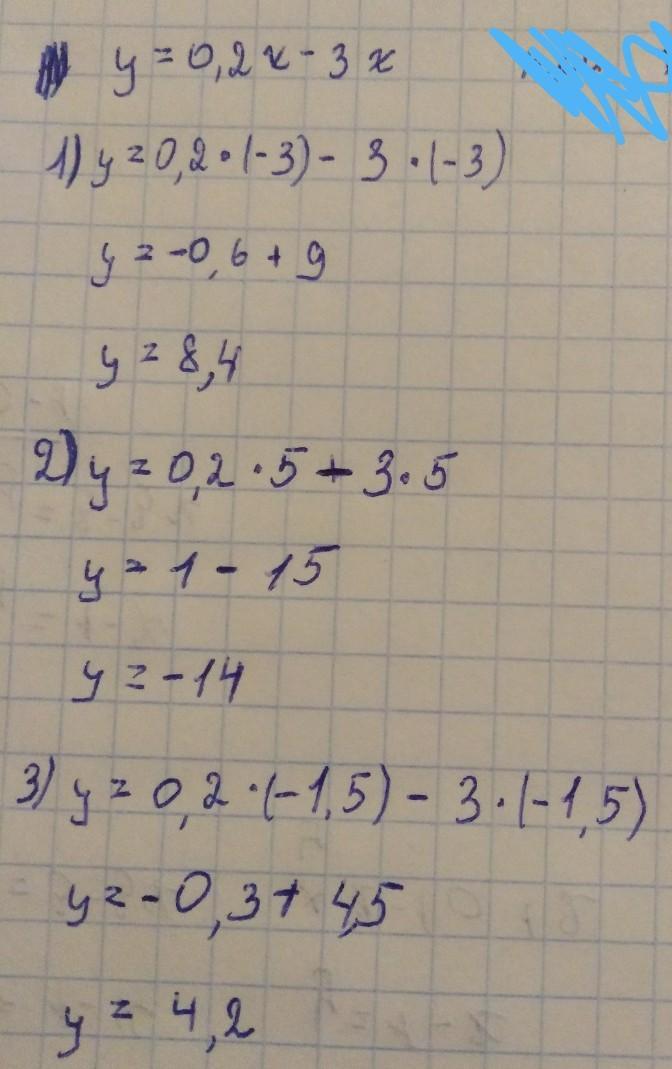 y = 0,2x - 3x
1) y = 0,2 · (-3) - 3 · (-3)
y = -0,6 + 9
y = 8,4
2) y = 0,2 · 5 + 3 · 5
y = 1 - 15
y = -14
3) y = 0,2 · (-1,5) - 3 · (-1,5)
y = -0,3 + 4,5
y = 4,2